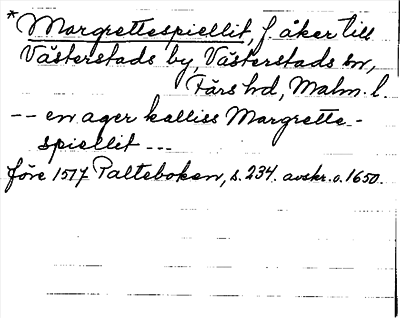 * Margrettespiellit, f. åker till
Västerstads by, Västerstads sn,
Färs hd, Malm. l.
-- en ager kalliss Margrette-
spiellit ---
före 1517 Palteboken, s. 234. avskr. o. 1650.